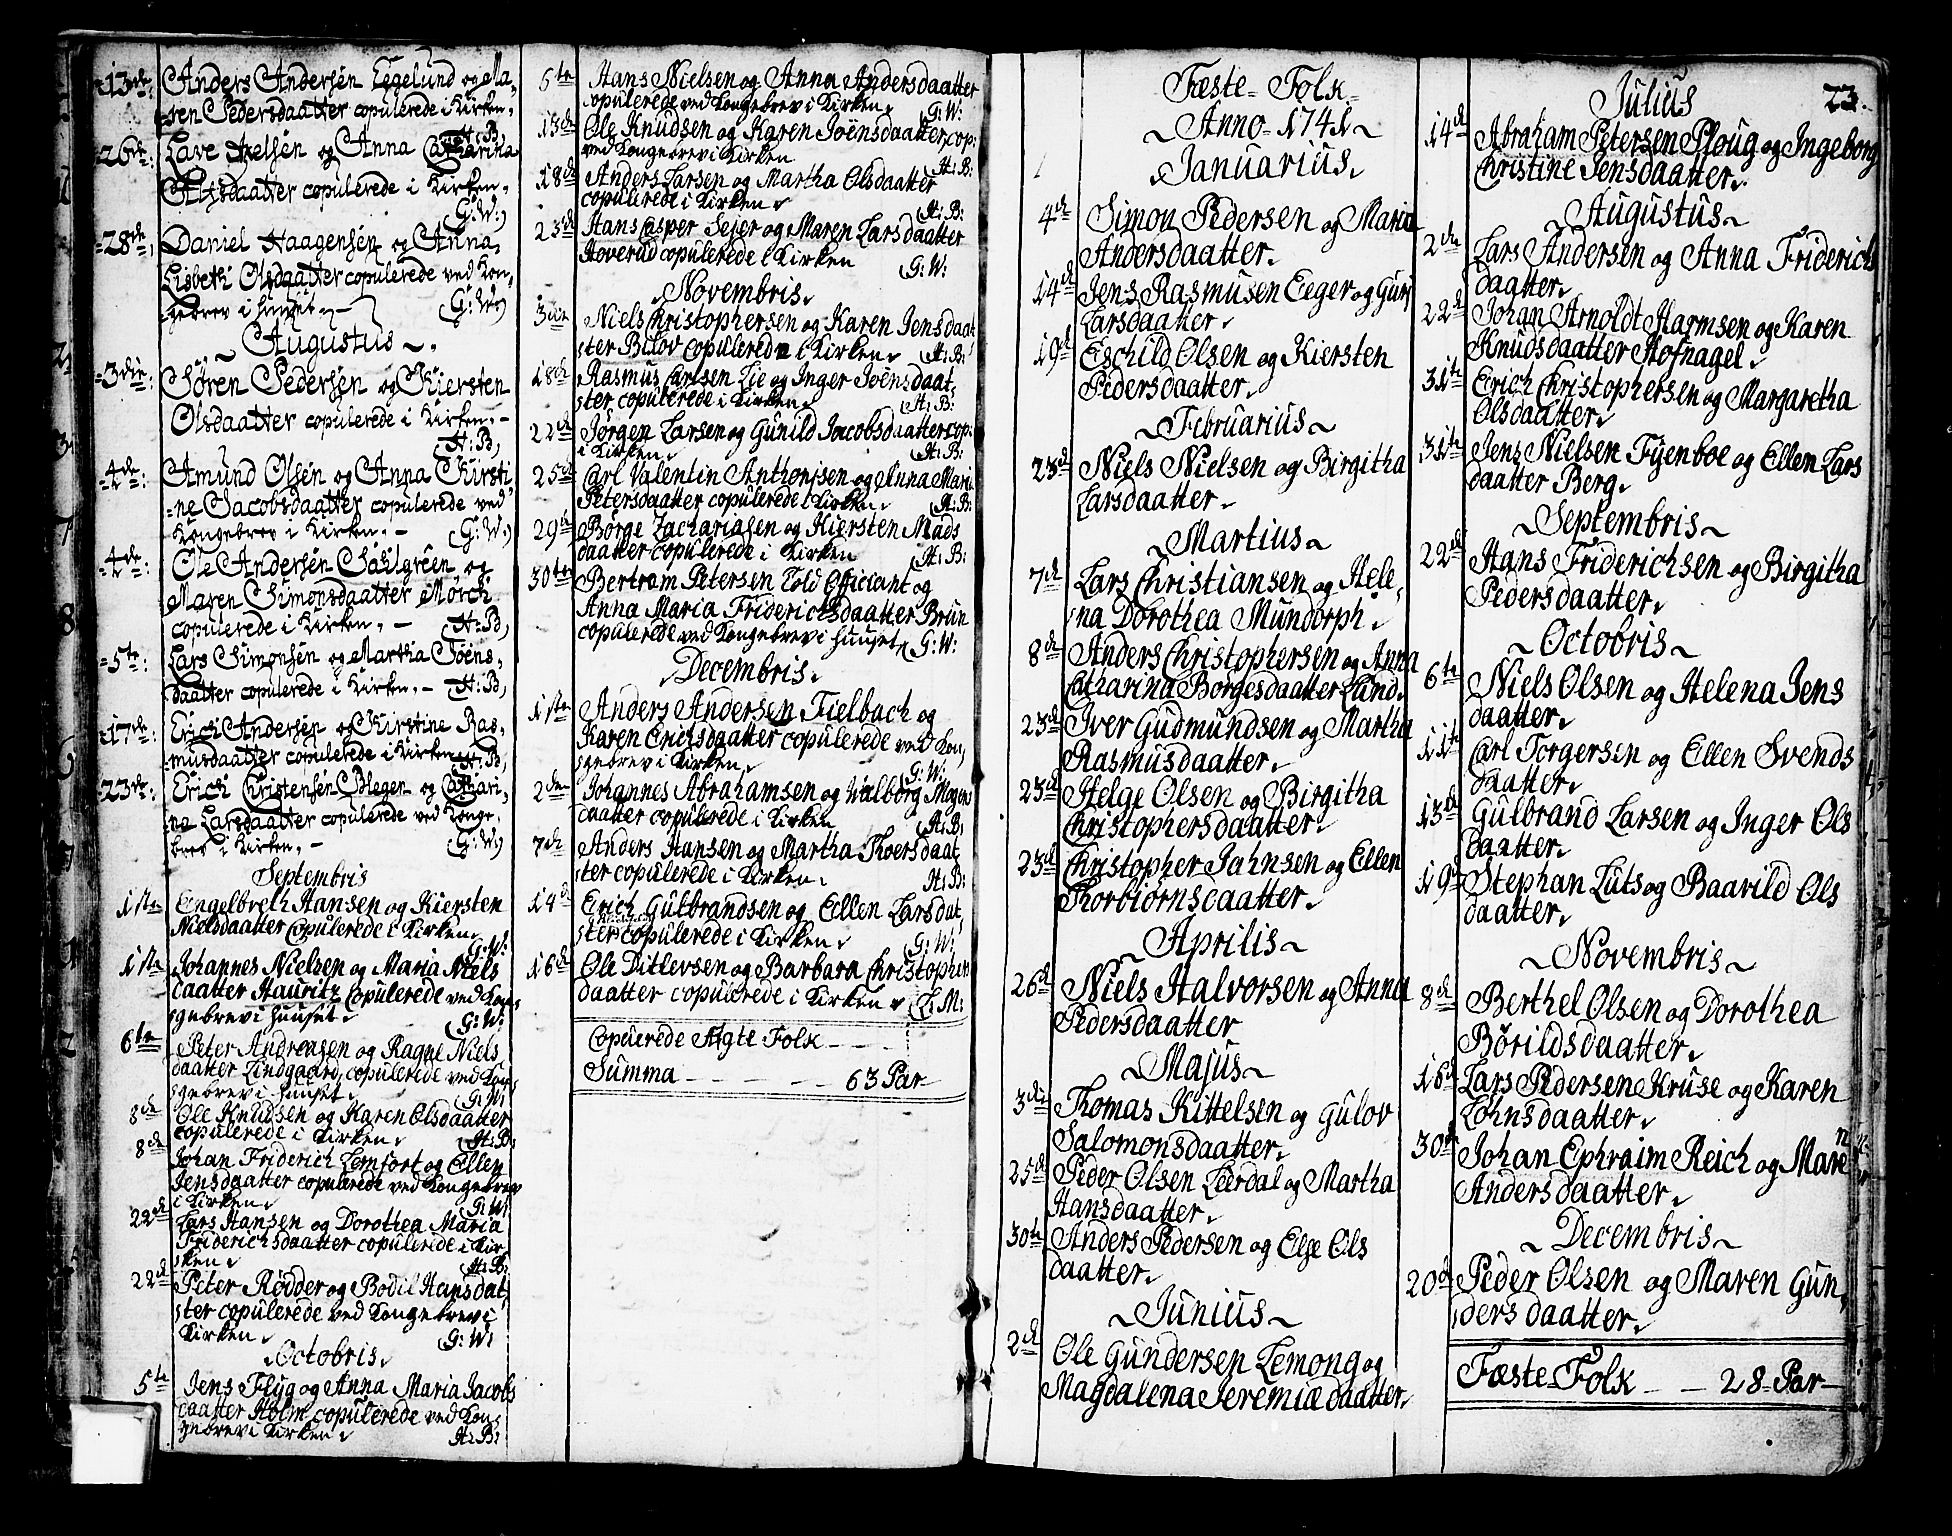 13de: Anders Andersen Eggelund og Ma-
ren Pedersdaatter copulerede i Kirken.
H:B:
26de: Lave Axelsen og Anna Catharina
Alfsdaatter copulerede i Kirken.
G:W:
28de: Daniel Haagensen og Anna
Lisbeth Olsdaatter copulerede ved Kon-
gebrev i Huuset. G:W:
Augustus
3die: Søren Pedersen og Kiersten
Olsdaatter copulerede i Kirken.
H:B:
4de: Amund Olsen og Anna Kirsti-
ne Jacobsdaatter copulerede ved
Kongebrev i Kirken. G:W:
4de: Ole Andersen Sahlgreen og
Maren Simonsdaatter Mørch
copulerede i Kirken. H:B:
5te: Lars Simonsen og Martha Joens-
daatter copulerede i Kirken. H:B:
17de: Erich Andersen og Kirstine Ras-
musdaatter copulerede i Kirken. H:B:
23de: Erich Christensen Bleger og Cathari-
na Larsdaatter copulerede ved Konge-
brev i Kirken. G:W:
Septembris
1ste Engelbreth Hansen og Kiersten
Nielsdaatter Copulerede i Kirken.
G:W:
1ste Johannes Nielsen og Maria Niels
daatter Hauritz Copulerede ved Kon-
gebrev i huuset. G:W:
6te Peter Andreasen og Ragne Niels
daatter Lindgaard copulerede ved Kon-
gebrev i huuset. G:W:
8de Ole Knudsen og Karen Olsdaatter
copulerede i Kirken. H:B:
8de Johan Friderich Lemfort og Ellen
Jensdaatter copulerede ved Kongebrev
i Kirken. G:W:
22de Lars Hansen og Dorothea Maria
Friderichsdaatter copulerede i Kir-
ken. H:B:
22de Peter Rødder og Bodil Hansdat-
ter copulerede ved Kongebrev i
Kirken. G:W:
Octobris
5te Jens Flyg og Anna Maria Jacobs
daatter Holm copulerede ved Kon-
gebrev i Kirken. H:B:
5te Hans Nielsen og Anna Andersdaatter
copulerede ved Kongebrev i Kirken. G:W:
13de Ole Knudsen og Karen Joensdaatter cop:
ved Kongebrev i Kirken H:B:
18de Anders Larsen og Martha Olsdaatter
copulerede i Kirken. H:B:
23de Hans Casper Sejer og Maren Larsdaatter
Hoverud copulerede i Kirken G:W:
Novembris
3die Niels Christophersen og Karen Jensdaat-
ter Bilov copulerede i Kirken. H:B:
18de Rasmus Carlsen Lie og Inger Joensdaat-
ter copulerede i Kirken. H:B:
22de Jørgen Larsen og Gunild Jacobsdaatter cop:
i Kirken. H:B:
25de Carl Valentin Anthonisen og Anna Maria
Petersdaatter copulerede i Kirken. H:B:
29de Børge Zachariasen og Kiersten Mads
daatter copulerede i Kirken H:B:
30te Bertram Petersen Told Officiant og
Anna Maria Friderichsdaatter Brun
copulerede ved Kongebrev i huuset. G:W:
Decembris
1ste Anders Andersen Fielbach og
Karen Erichsdaatter copulerede ved Kon-
gebrev i Kirken. G:W:
2den Johannes Abrahamsen og Walborg Mogens
daatter copulerede i Kirken H:B:
7de Anders Hansen og Martha Thoersdaat-
ter copulerede i Kirken. H:B:
14de Erich Gulbrandsen og Ellen Larsdat-
ter copulerede i Kirken. G:W:
16de Ole Ditlevsen og Barbara Christophers
daatter copulerede i Kirken L:M:
Copulerede Ægte-Folk
Summa 63 Par
Fæste-Folk
Anno 1741
Januarius
4de Simon Pedersen og Maria
Andersdaatter.
14de Jens Rasmusen Eeger og Guri
Larsdaatter.
19de Eschild Olsen og Kiersten
Pedersdaatter.
Februarius
23de Niels Nielsen og Birgitha
Larsdaatter.
Martius
7de Lars Christiansen og Hele-
na Dorothea Mundorph.
8de Anders Christophersen og Anna
Catharina Borgesdaatter Lund.
23de Iver Gudmundsen og Martha
Rasmusdaatter.
23de Helge Olsen og Birgitha
Christophersdaatter.
23de Christopher Jahnsen og Ellen
Thorbiørnsdaatter.
Aprilis
26de Niels Halvorsen og Anna
Pedersdaatter
Majus
3die Thomas Kittelsen og Gulov
Salomonsdaatter.
25de Peder Olsen Leerdal og Martha
Hansdaatter.
30te Anders Pedersen og Else Ols
daatter.
Junius
2de Ole Gundersen Lemong og
Magdalena Jeremiædaatter.
23.
Julius
14de Abraham Petersen Ploug og Ingeborg
Christine Jensdaatter.
Augustus
2den Lars Andersen og Anna Friderichs
daatter.
22de Johan Arnoldt Harmsen og Karen
Knudsdaatter Hofnagel.
31te Erich Christophersen og Margaretha
Olsdaatter.
31te Jens Nielsen Fyenboe og Ellen Lars
daatter Berg.
Septembris
22de Hans Friderichsen og Birgitha
Pedersdaatter.
Octobris
6te Niels Olsen og Helena Jens
daatter.
11te Carl Torgersen og Ellen Svends
daatter.
13de Gulbrand Larsen og Inger Ols
daatter.
19de Stephan Luts og Baarild Ols
daatter.
Novembris
8de Berthel Olsen og Dorothea
Børildsdaatter.
16de Lars Pedersen Kruse og Karen
Lohnsdaatter.
30te Johan Ephraim Reich og Maren
Andersdaatter.
Decembris
20de Peder Olsen og Maren Gun-
dersdaatter.
Fæste-Folk 28-Par